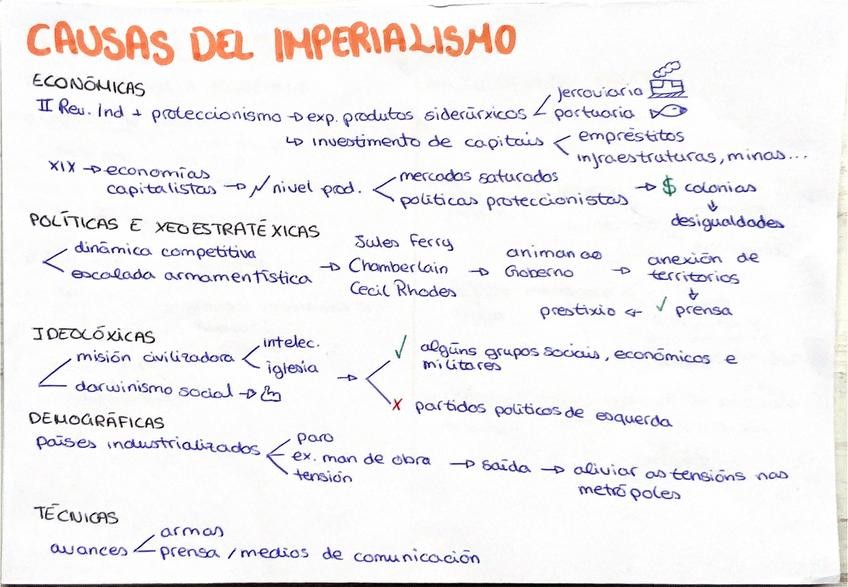 CAUSAS DEL IMPERIALISMO
ECONÓMICAS
II Rev. Ind + proteccionismo → exp. produtos siderúrxicos < ferroviaria
portuaria
↳ investimento de capitais < empréstitos
infraestruturas, minas...
XIX → economías
capitalistas → nivel prod. < mercados saturados
políticas proteccionistas → $ colonias
↓
desigualdades
POLÍTICAS E XEOESTRATÉXICAS
< dinámica competitiva
escalada armamentística → Jules Ferry
Chamberlain
Cecil Rhodes
→ animan ao
Goberno → anexión de
territorios
↓
prestixio ← ✓ prensa
IDEOLÓXICAS
misión civilizadora < intelec.
iglesia
darwinismo social →
→ < ✓ algúns grupos sociais, económicos e
militares
X partidos políticos de esquerda
DEMOGRÁFICAS
países industrializados < paro
ex. man de obra → saída → aliviar as tensións nas
metrópoles
tensión
TÉCNICAS
avances < armas
prensa / medios de comunicación